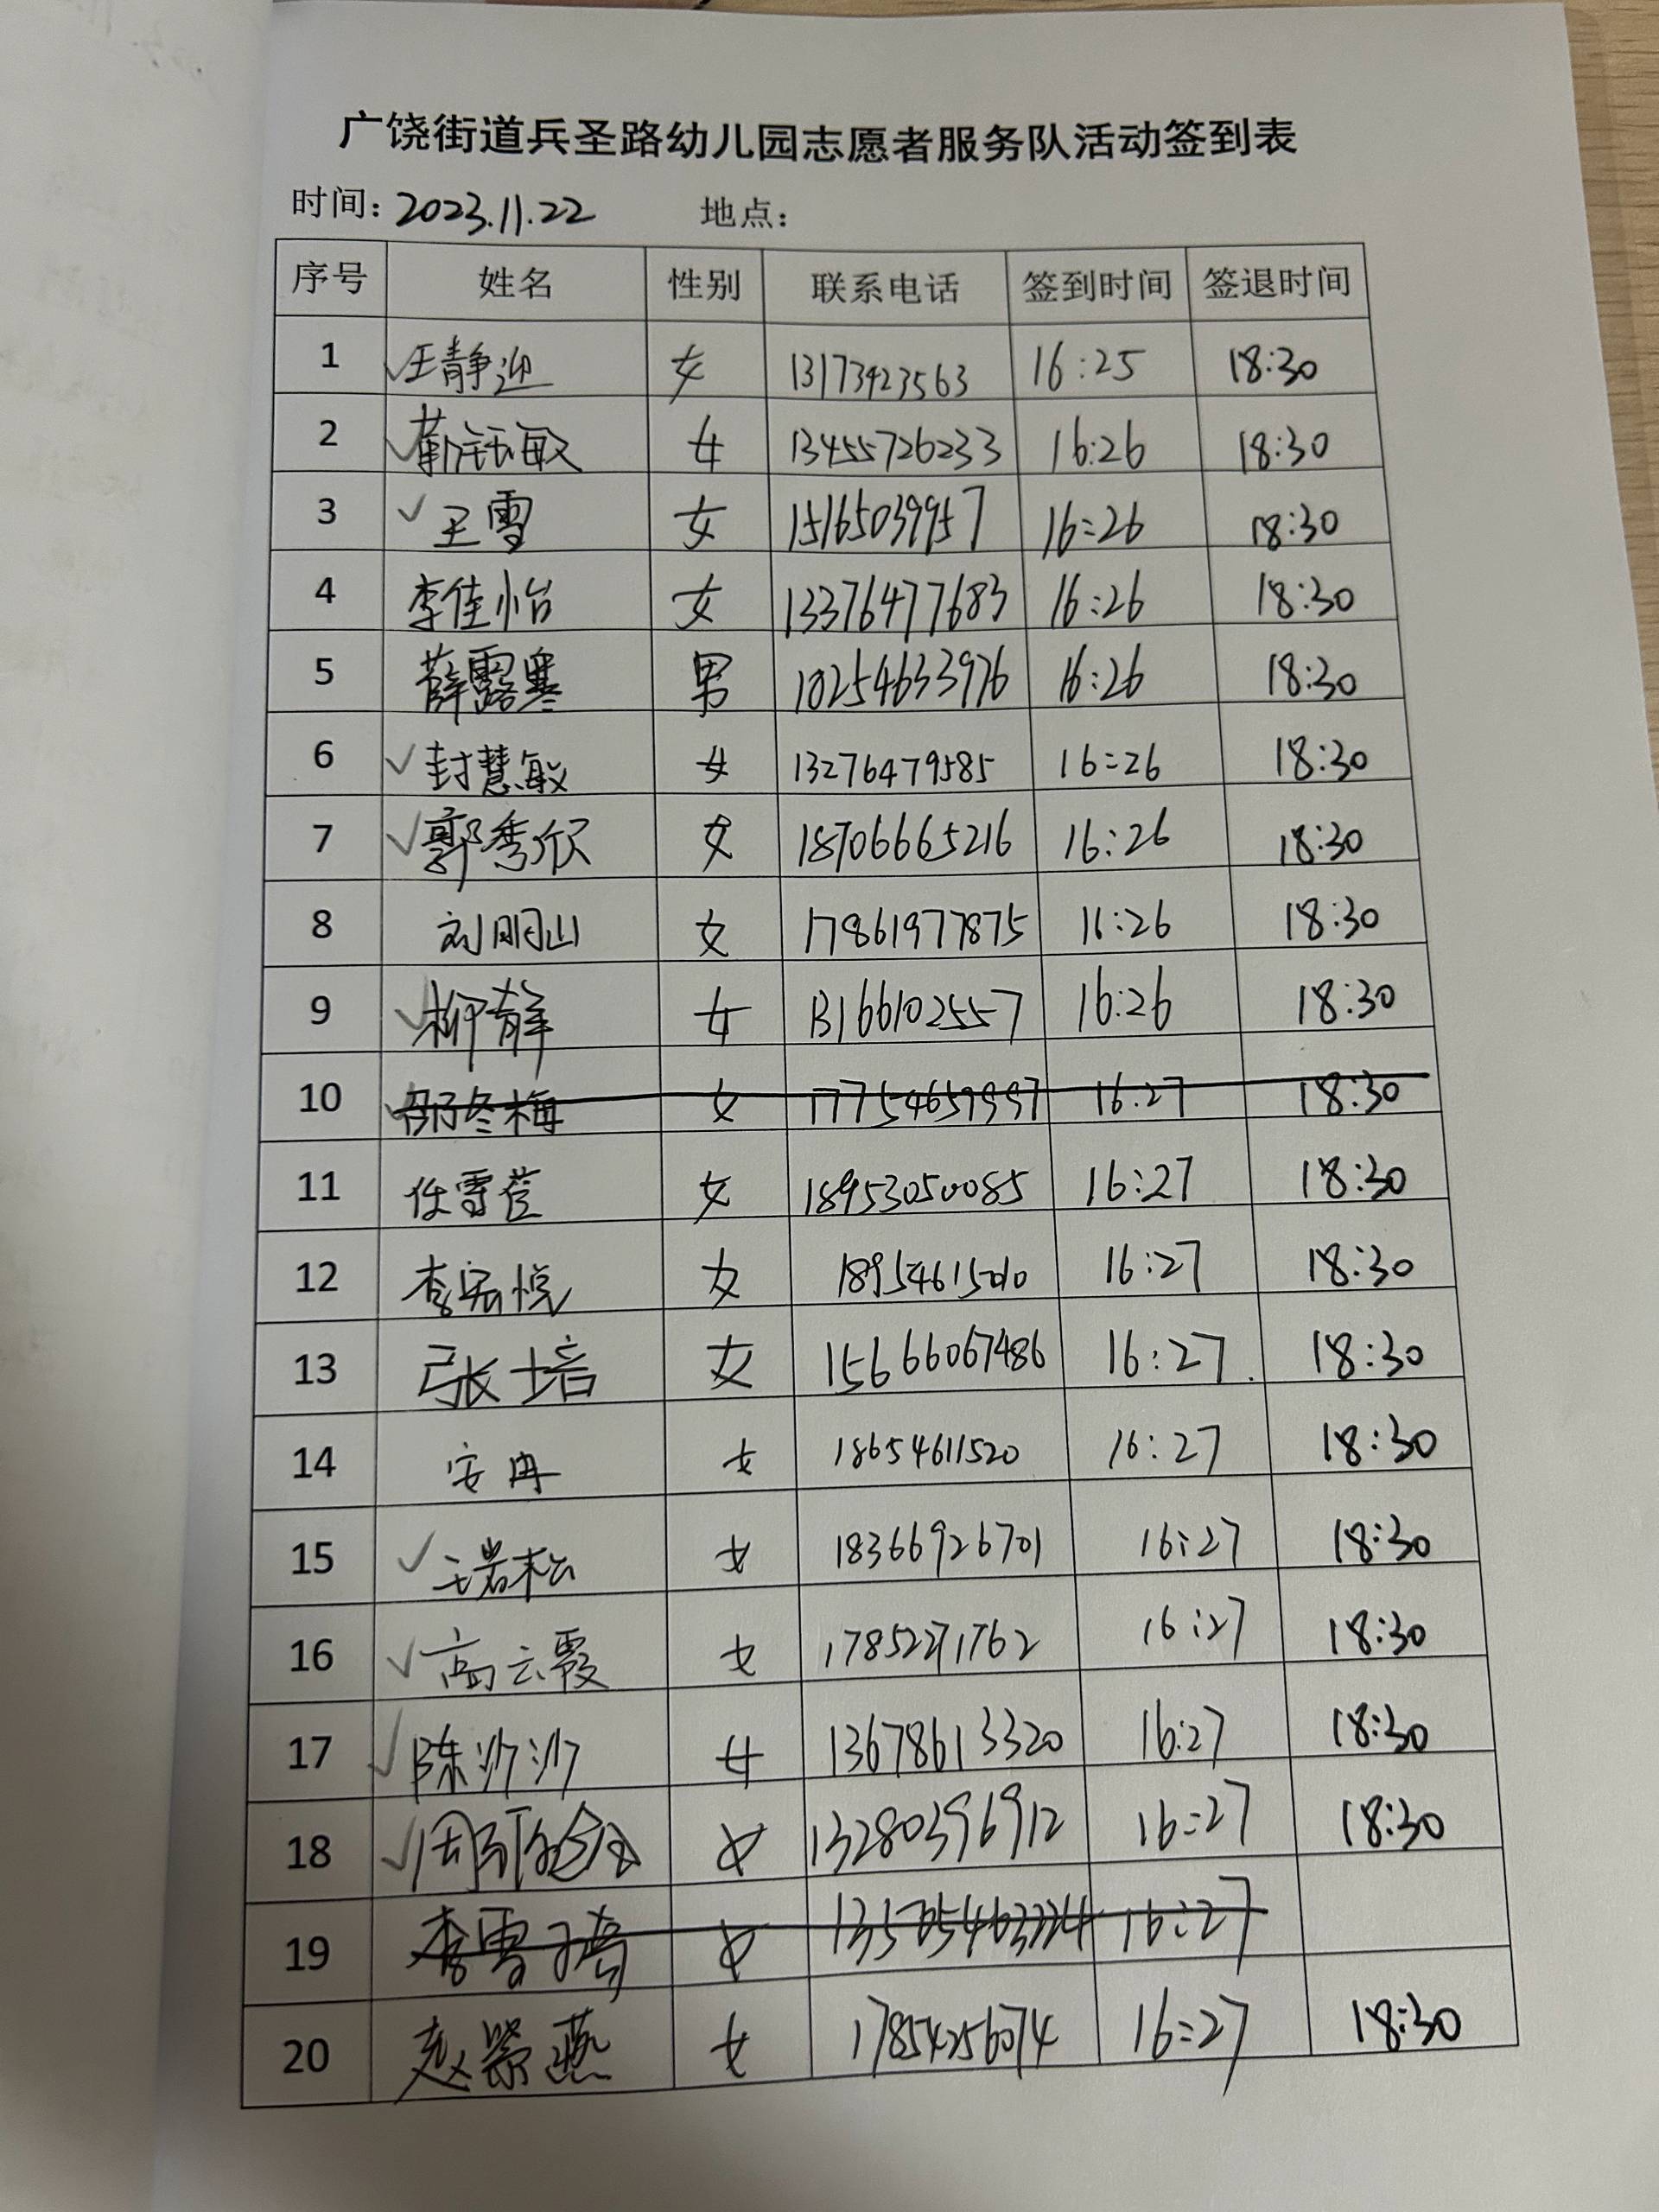 广饶街道兵圣路幼儿园志愿者服务队活动签到表
时间：2023.11.22 地点：
序号 姓名 性别 联系电话 签到时间 签退时间
1 王静迎 女 13173423563 16:25 18:30
2 靳钰敏 女 13455726233 16:26 18:30
3 王雪 女 15165039957 16:26 18:30
4 李佳怡 女 13376477683 16:26 18:30
5 薛露寒 男 18254633976 16:26 18:30
6 封慧敏 女 13276479585 16:26 18:30
7 郭秀欣 女 18706665216 16:26 18:30
8 刘明山 女 17861977875 16:26 18:30
9 柳静 女 13166102557 16:26 18:30
10 邵冬梅 女 17754657997 16:27 18:30
11 任雪莲 女 18953050085 16:27 18:30
12 李宏悦 女 18954615010 16:27 18:30
13 张培 女 15666067486 16:27 18:30
14 安冉 女 18654611520 16:27 18:30
15 王岩松 女 18366926701 16:27 18:30
16 高云霞 女 17852271762 16:27 18:30
17 陈沙沙 女 13678613320 16:27 18:30
18 女 13280396912 16:27 18:30
19 李雪 女 16:27
20 赵翠燕 女 17854256074 16:27 18:30